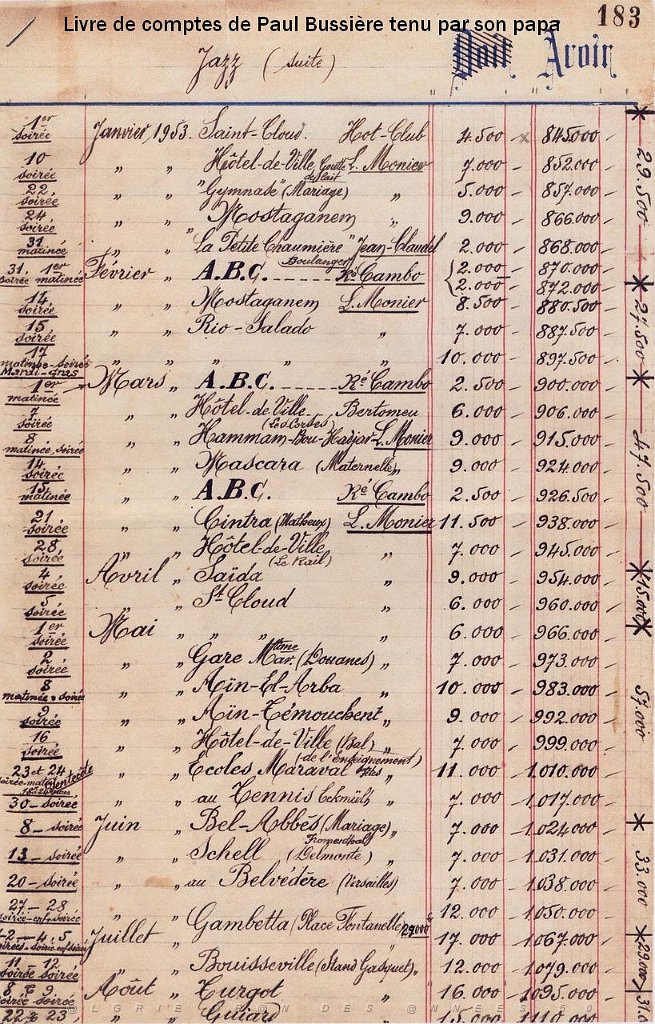 Livre de comptes de Paul Bussière tenu par son papa
183
Jazz (suite) Doit Avoir
1er soirée Janvier, 1953. Saint-Cloud Hot-Club 4.500 845.000
10 soirée " " Hôtel-de-Ville L. Monier 7.000 852.000
22 soirée " " "Gymnase" (Mariage) " 5.000 857.000
24 soirée " " Mostaganem " 9.000 866.000
31 matinée " " "la Petite Chaumière" Jean-Claudel 2.000 868.000
31. 1er soirée matinée Février " A.B.C. (Boulanger) Ré Cambo 2.000 870.000
2.000 872.000
14 soirée " " Mostaganem L. Monier 8.500 880.500
15 soirée " " Rio-Salado " 7.000 887.500
17 matinée-soirée Mardi-Gras " " " " " 10.000 897.500
1er matinée Mars " A.B.C. Ré Cambo 2.500 900.000
7 soirée " " Hôtel-de-Ville Bertomeu 6.000 906.000
8 matinée, soirée " " Hammam-Bou-Hadjar L. Monier 9.000 915.000
14 soirée " " Mascara (Maternelle) " 9.000 924.000
15 matinée " " A.B.C. Ré Cambo 2.500 926.500
21 soirée " " Cintra L. Monier 11.500 938.000
28 soirée " " Hôtel-de-Ville (Le Rail) " 7.000 945.000
4 soirée Avril " Saïda " 9.000 954.000
5 soirée " " St Cloud " 6.000 960.000
1er soirée Mai " " " " 6.000 966.000
2 soirée " " Gare Mar.time (Douanes) " 7.000 973.000
8 matinée-soirée " " Aïn-El-Arba " 10.000 983.000
9 soirée " " Aïn-Témouchent " 9.000 992.000
16 soirée " " Hôtel-de-Ville (Bal) " 7.000 999.000
23 et 24 Pentecôte " " Écoles Maraval (de l'enseignement) " 11.000 1.010.000
30-soirée " " au Tennis Eckmühl " 7.000 1.017.000
8-soirée Juin " Bel-Abbès (Mariage) " 7.000 1.024.000
13-soirée " " Schell (Delmonte) " 7.000 1.031.000
20-soirée " " au Belvédère (Versailles) " 7.000 1.038.000
27-28 " 12.000 1.050.000
Juillet " Gambetta (Place Fontanelle) 29.000 17.000 1.067.000
11-12 soirée soirée " " Bouisseville (Stand Gasquet) " 12.000 1.079.000
8 & 9 soirée soirée Août " Turgot " 16.000 1.095.000
22 & 23 " " Guiard 15.000 1.110.000
29.500
27.500
47.500
15.000
57.000
33.000
29.000